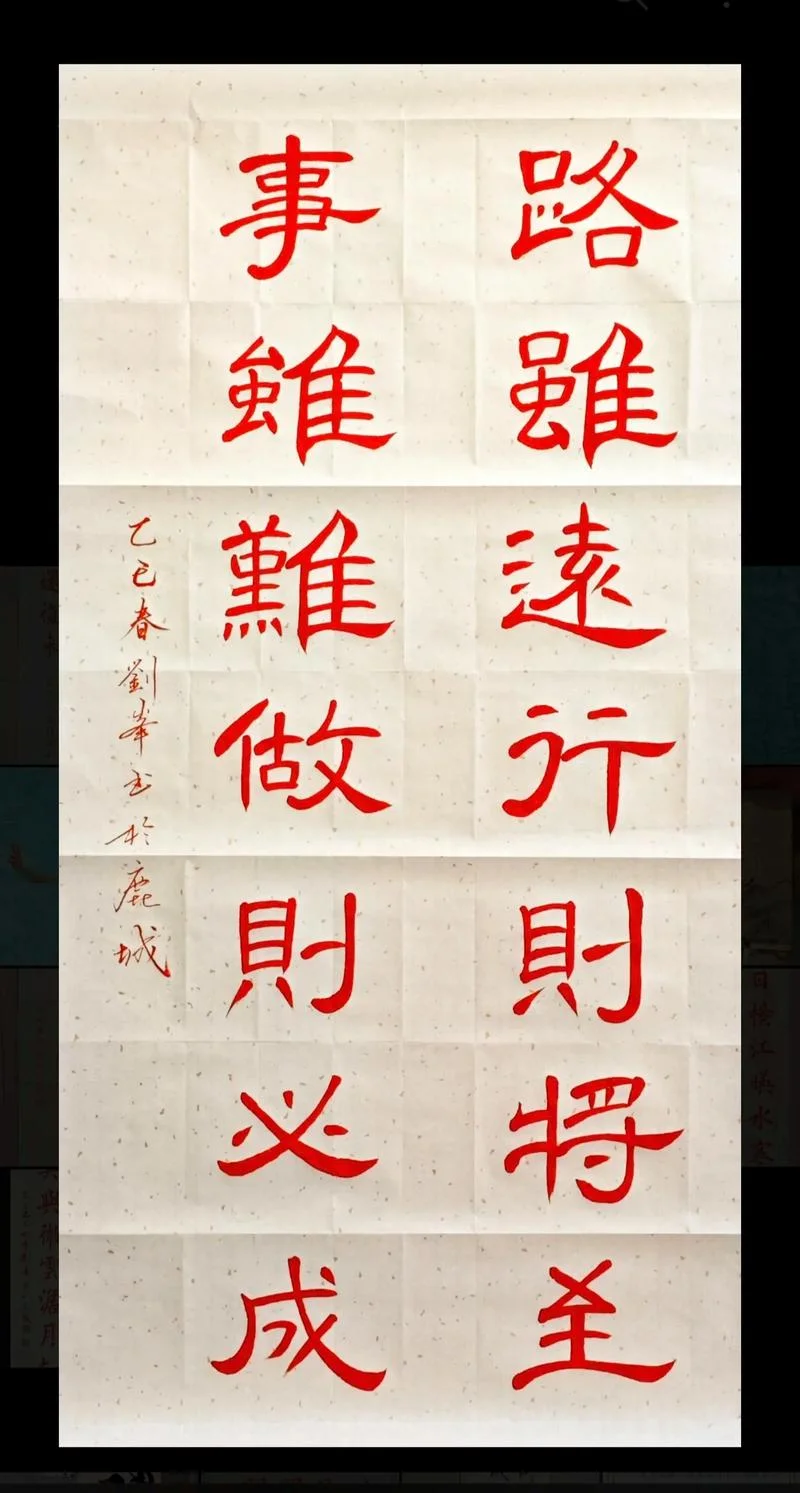 路雖遠行則將至
事雖難做則必成
乙巳春劉峯書於鹿城